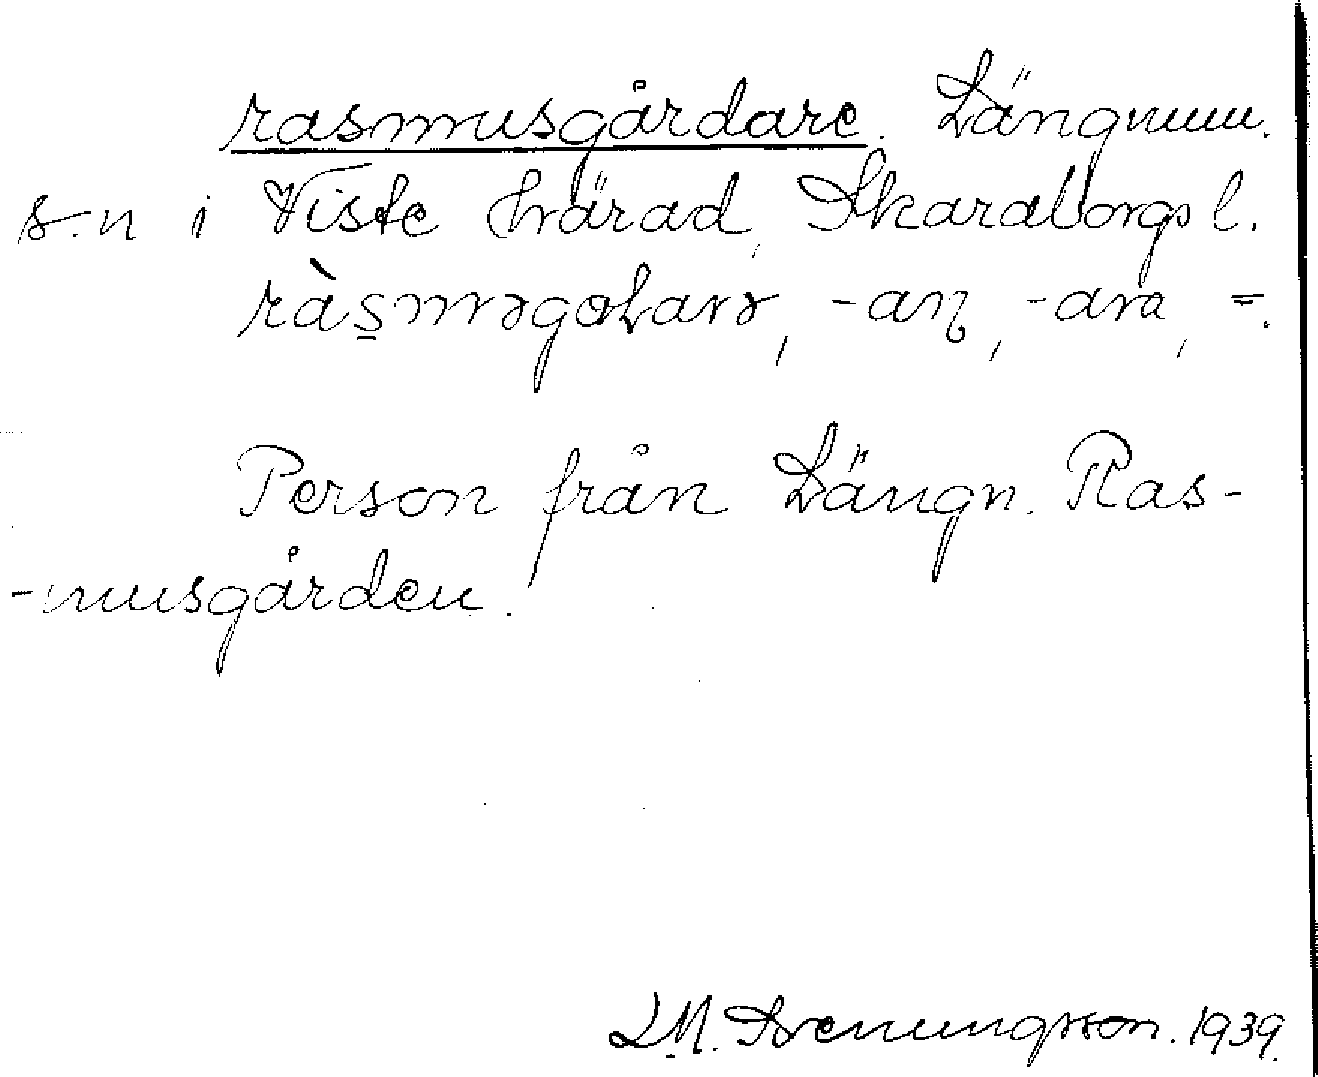 rasmusgårdare. Längnum.
s-n i Viste härad, Skaraborgs l.
-an, -ara, =.
Person från Längn. Ras-
-musgården.
D.M. Svenungsson. 1939.